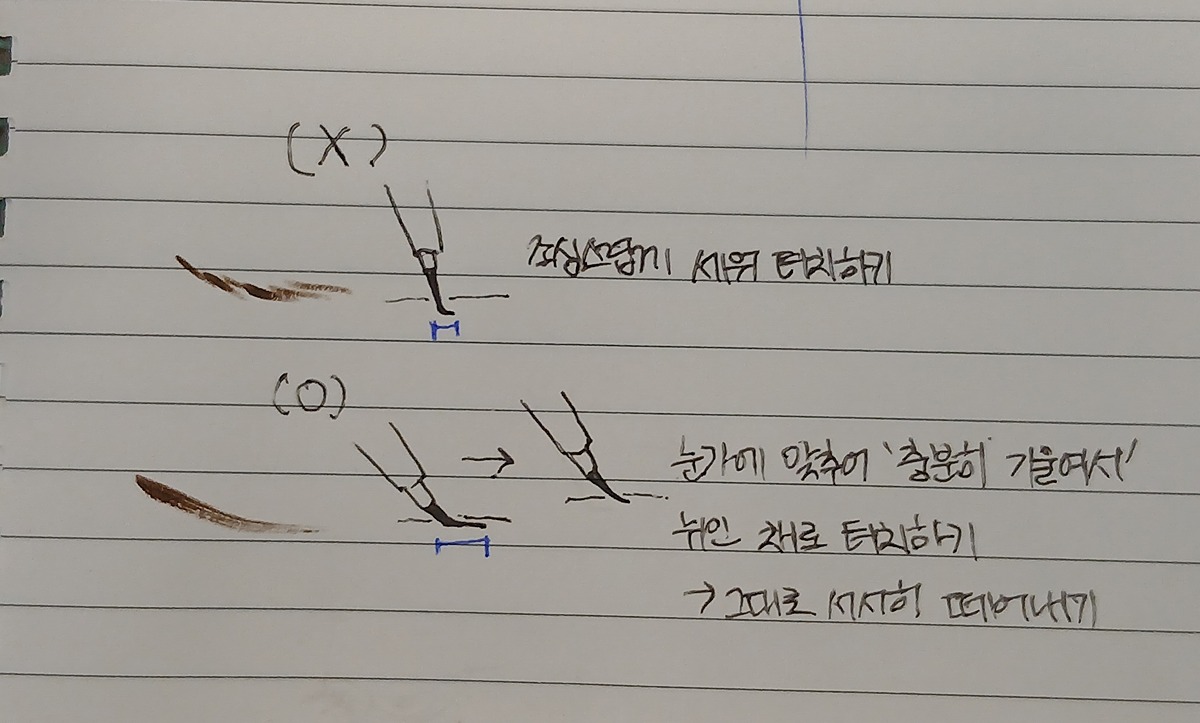 (X)
조심스럽게 세워 터치하기
(O)
→
눈가에 맞추어 '충분히 기울여서'
뉘인 채로 터치하기
→ 그대로 서서히 떼어내기